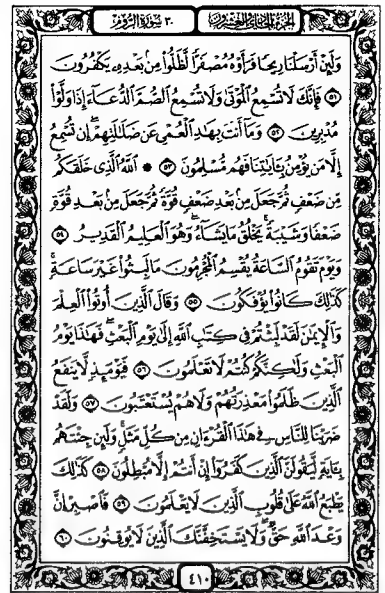 الجزء الحادي والعشرون ٣٠ سورة الروم
وَلَئِنْ أَرْسَلْنَا رِيحًا فَرَأَوْهُ مُصْفَرًّا لَّظَلُّوا۟ مِنۢ بَعْدِهِۦ يَكْفُرُونَ
٥١ فَإِنَّكَ لَا تُسْمِعُ ٱلْمَوْتَىٰ وَلَا تُسْمِعُ ٱلصُّمَّ ٱلدُّعَآءَ إِذَا وَلَّوْا۟
مُدْبِرِينَ ٥٢ وَمَآ أَنتَ بِهَٰدِ ٱلْعُمْىِ عَن ضَلَٰلَتِهِمْ إِن تُسْمِعُ
إِلَّا مَن يُؤْمِنُ بِـَٔايَٰتِنَا فَهُم مُّسْلِمُونَ ٥٣ ۞ ٱللَّهُ ٱلَّذِى خَلَقَكُم
مِّن ضَعْفٍ ثُمَّ جَعَلَ مِنۢ بَعْدِ ضَعْفٍ قُوَّةً ثُمَّ جَعَلَ مِنۢ بَعْدِ قُوَّةٍ
ضَعْفًا وَشَيْبَةً يَخْلُقُ مَا يَشَآءُ وَهُوَ ٱلْعَلِيمُ ٱلْقَدِيرُ ٥٤
وَيَوْمَ تَقُومُ ٱلسَّاعَةُ يُقْسِمُ ٱلْمُجْرِمُونَ مَا لَبِثُوا۟ غَيْرَ سَاعَةٍ
كَذَٰلِكَ كَانُوا۟ يُؤْفَكُونَ ٥٥ وَقَالَ ٱلَّذِينَ أُوتُوا۟ ٱلْعِلْمَ
وَٱلْإِيمَٰنَ لَقَدْ لَبِثْتُمْ فِى كِتَٰبِ ٱللَّهِ إِلَىٰ يَوْمِ ٱلْبَعْثِ فَهَٰذَا يَوْمُ
ٱلْبَعْثِ وَلَٰكِنَّكُمْ كُنتُمْ لَا تَعْلَمُونَ ٥٦ فَيَوْمَئِذٍ لَّا يَنفَعُ
ٱلَّذِينَ ظَلَمُوا۟ مَعْذِرَتُهُمْ وَلَا هُمْ يُسْتَعْتَبُونَ ٥٧ وَلَقَدْ
ضَرَبْنَا لِلنَّاسِ فِى هَٰذَا ٱلْقُرْءَانِ مِن كُلِّ مَثَلٍ وَلَئِن جِئْتَهُم
بِـَٔايَةٍ لَّيَقُولَنَّ ٱلَّذِينَ كَفَرُوٓا۟ إِنْ أَنتُمْ إِلَّا مُبْطِلُونَ ٥٨ كَذَٰلِكَ
يَطْبَعُ ٱللَّهُ عَلَىٰ قُلُوبِ ٱلَّذِينَ لَا يَعْلَمُونَ ٥٩ فَٱصْبِرْ إِنَّ
وَعْدَ ٱللَّهِ حَقٌّ وَلَا يَسْتَخِفَّنَّكَ ٱلَّذِينَ لَا يُوقِنُونَ ٦٠
٤١٠